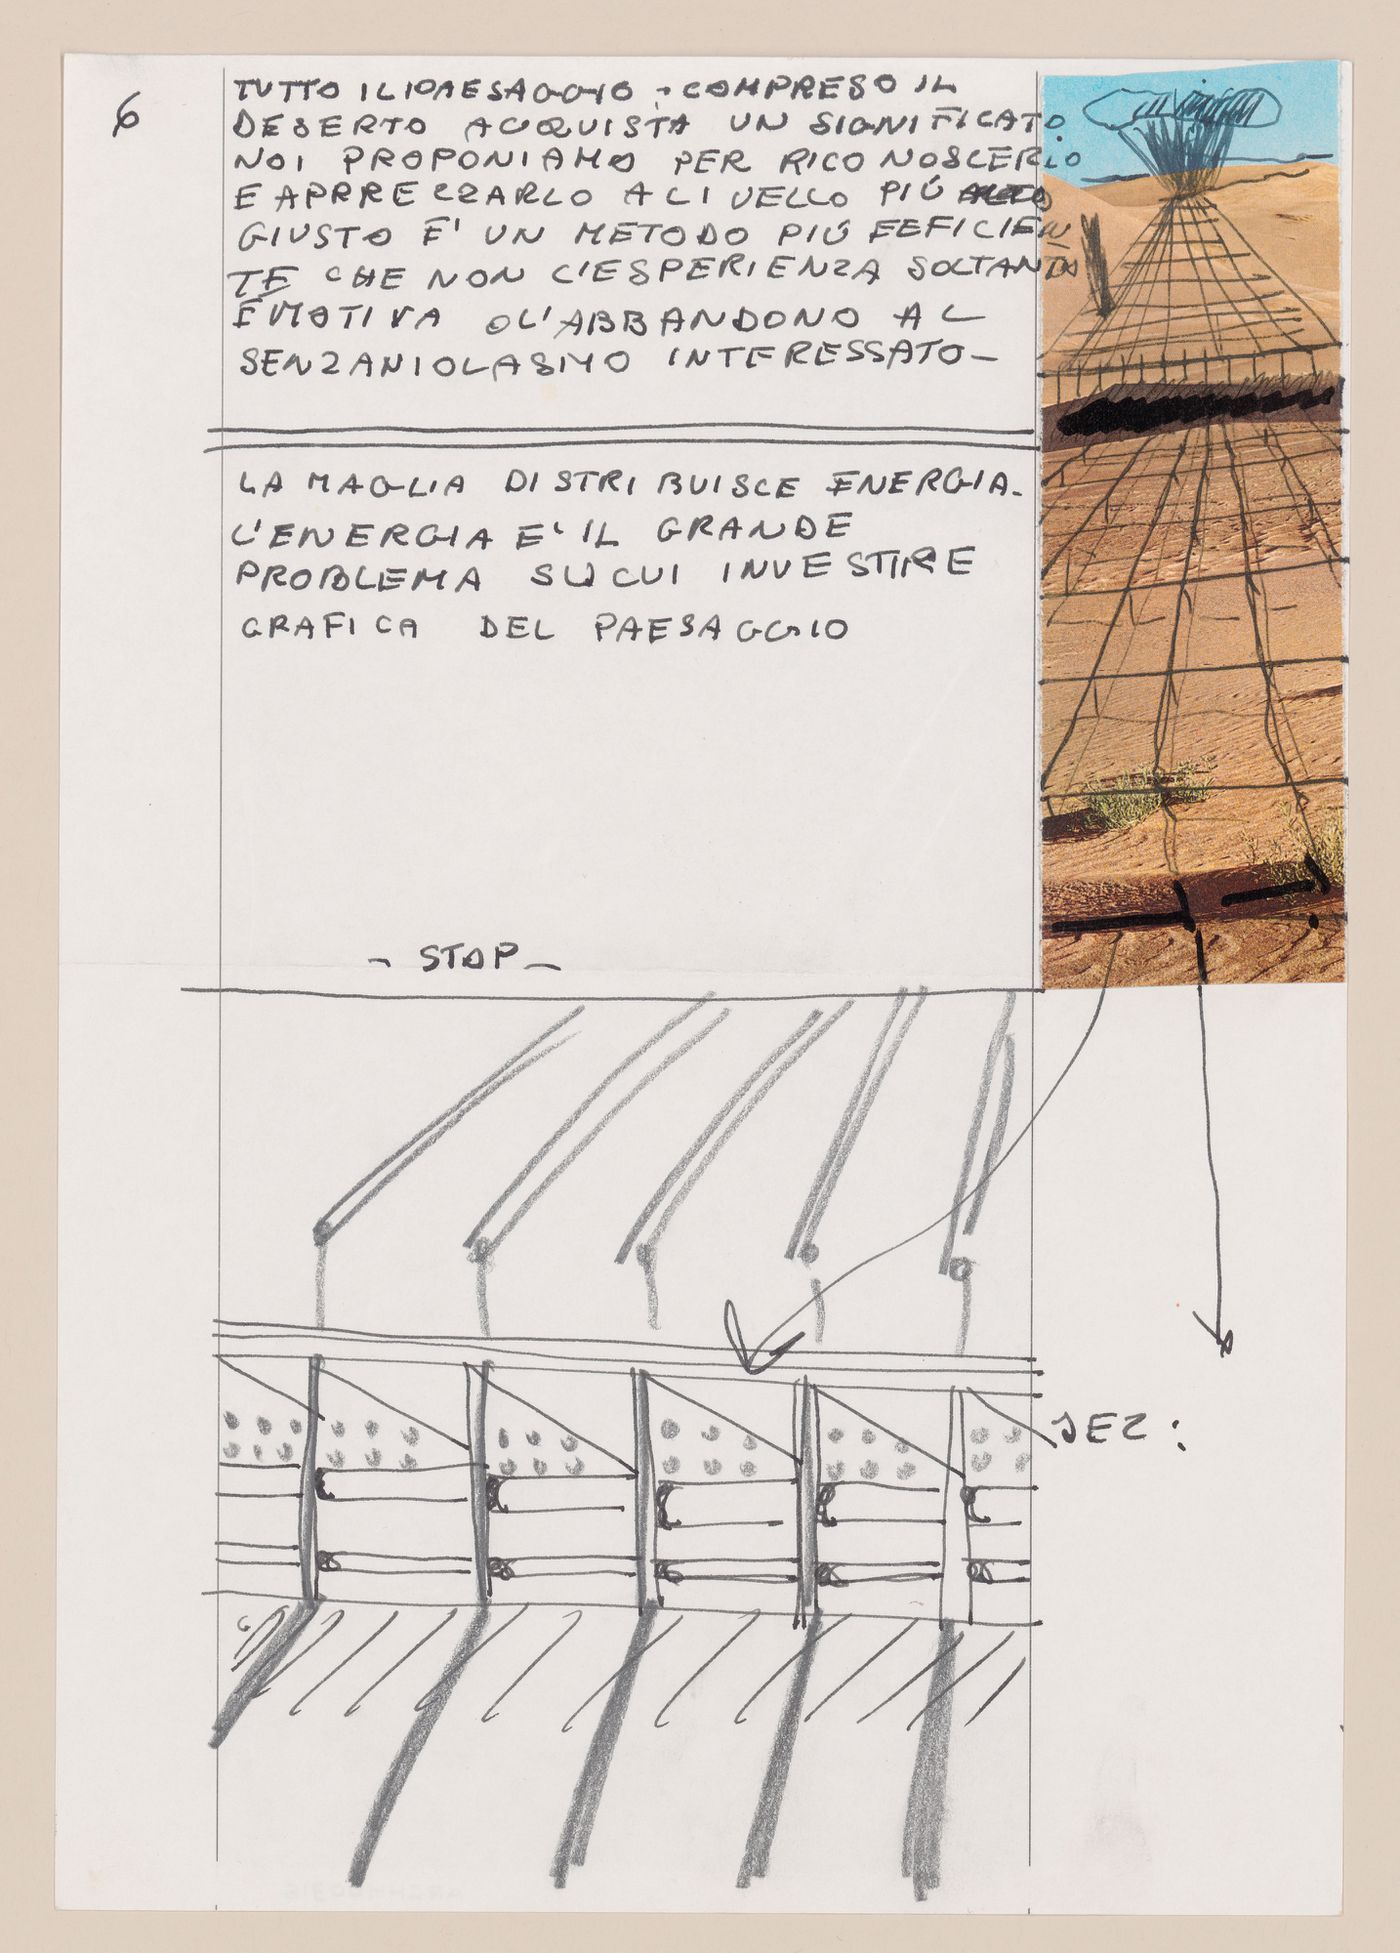 6
TUTTO IL PAESAGGIO - COMPRESO IL
DESERTO ACQUISTA UN SIGNIFICATO.
NOI PROPONIAMO PER RICONOSCERLO
E APRREZZARLO A LIVELLO PIÚ
GIUSTO E' UN METODO PIÚ EEFICIEN
TE CHE NON L'ESPERIENZA SOLTANTO
EMOTIVA O L'ABBANDONO AL
SENZANIOLASMO INTERESSATO-
LA MAGLIA DISTRIBUISCE ENERGIA.
L'ENERGIA E' IL GRANDE
PROBLEMA SU CUI INVESTIRE
GRAFICA DEL PAESAGGIO
- STOP -
SEZ: